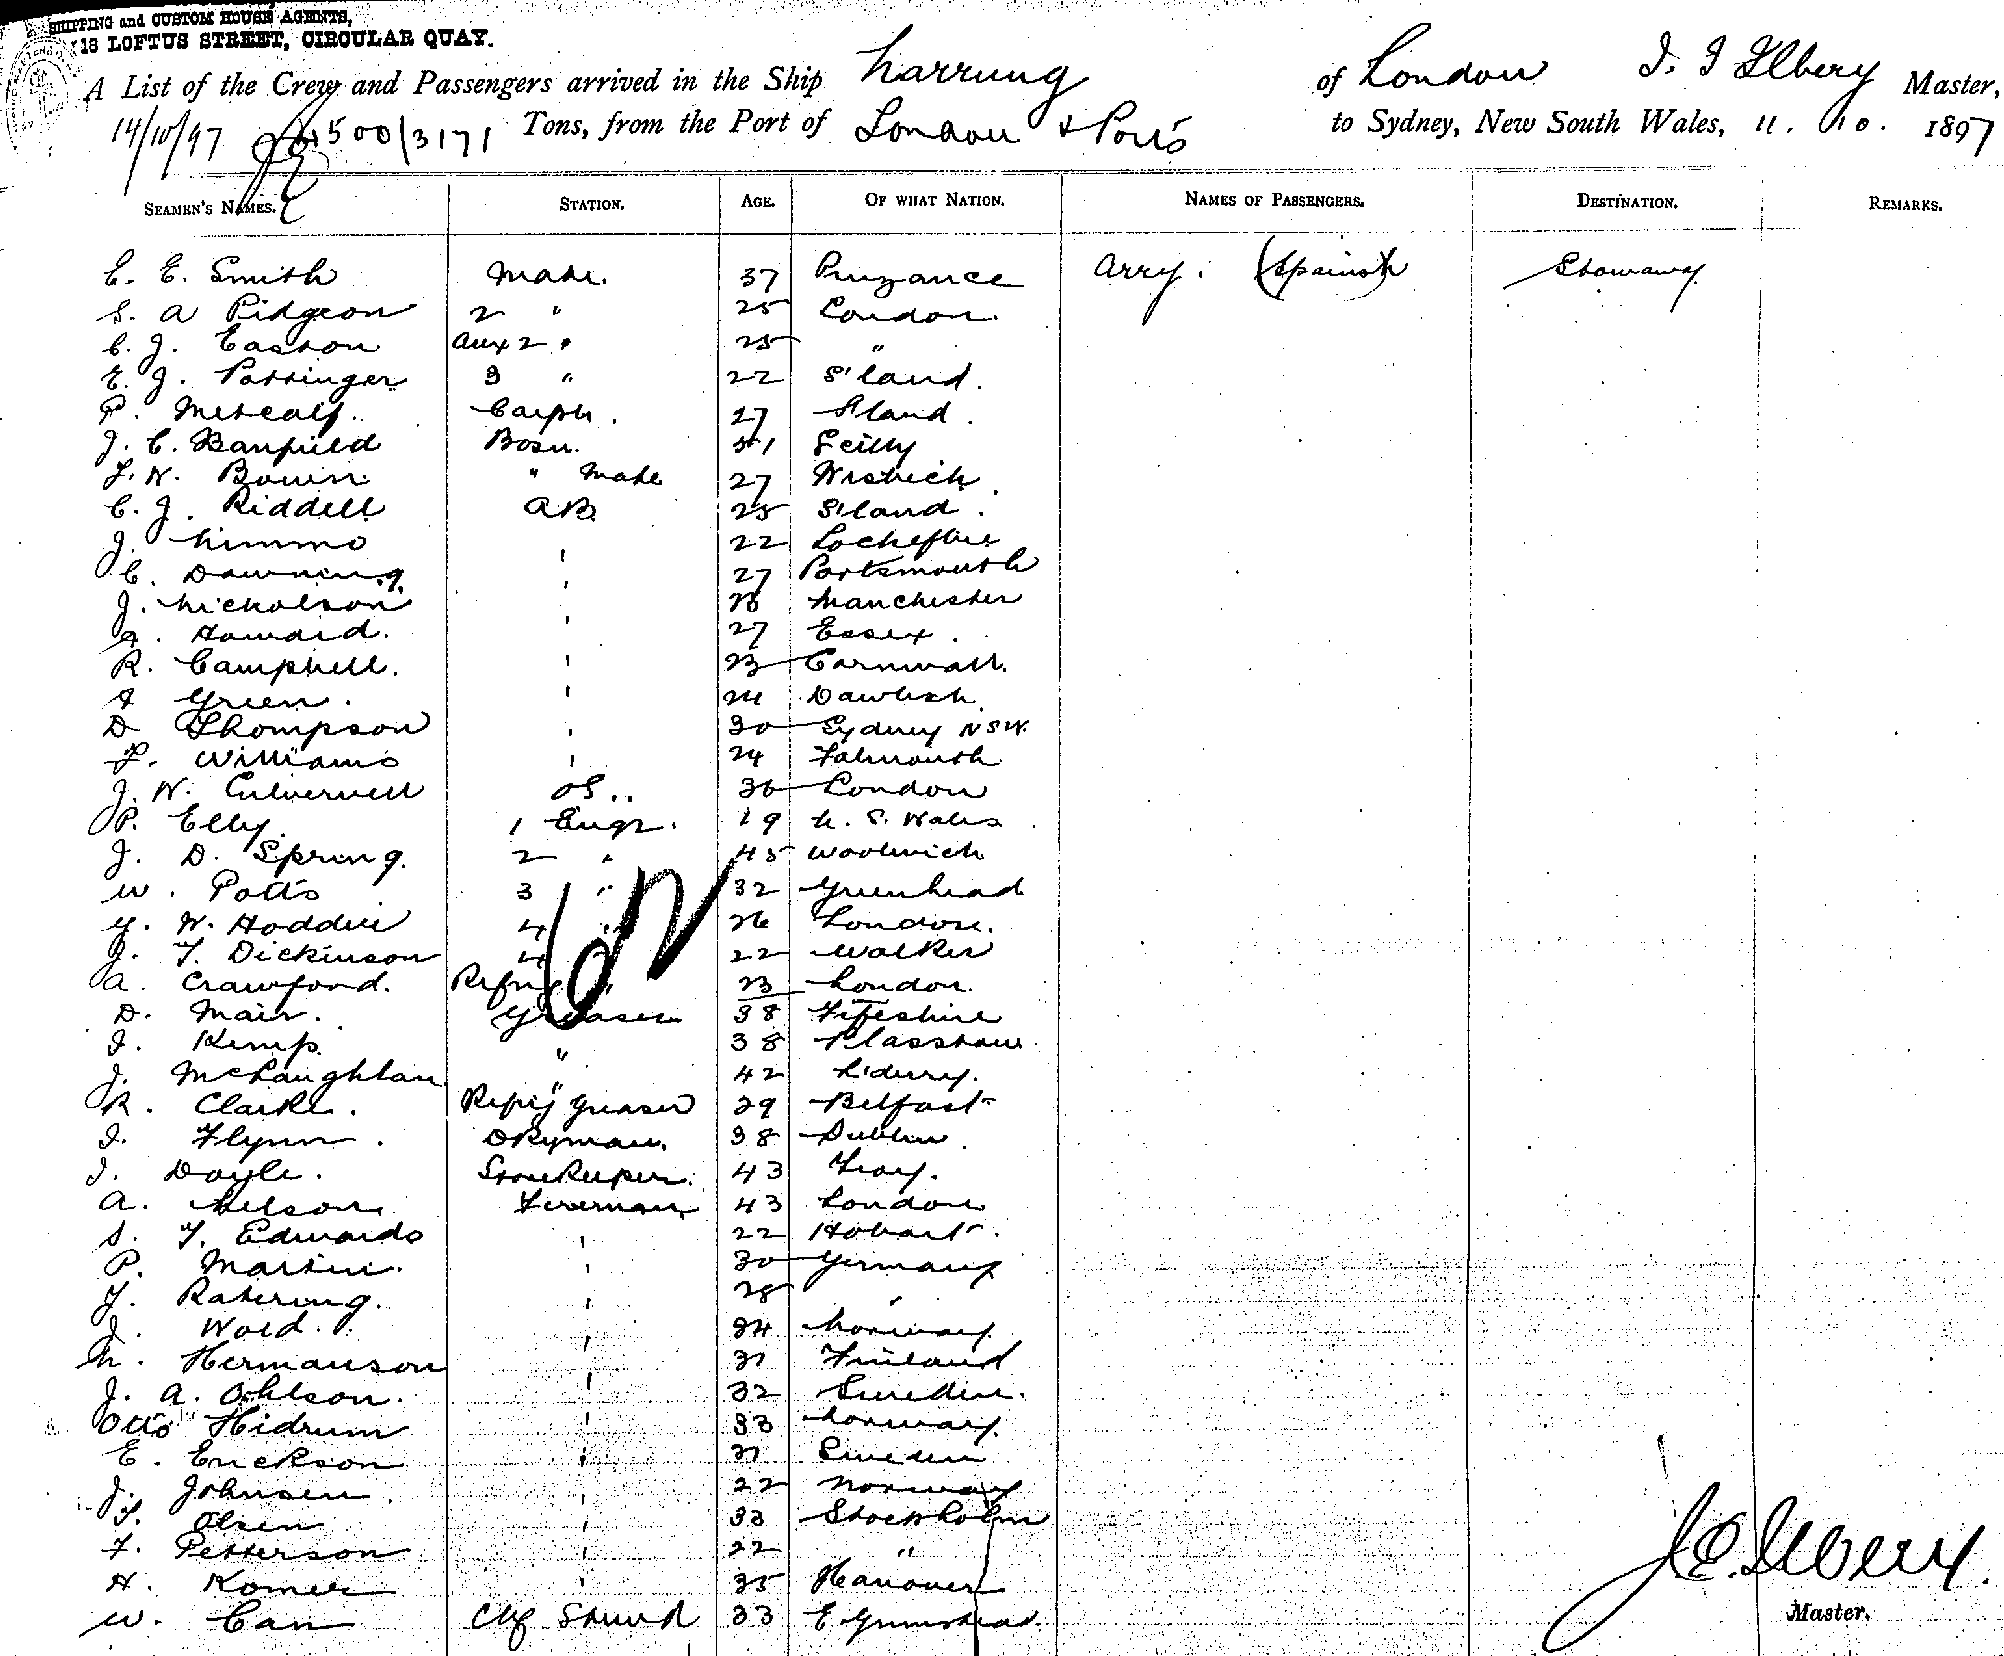 SHIPPING and CUSTOM HOUSE AGENTS,
18 LOFTUS STREET, CIRCULAR QUAY.
A List of the Crew and Passengers arrived in the Ship Narrung of London J. F Ilbery Master,
14/10/97 500/3171 Tons, from the Port of London & Ports to Sydney, New South Wales, 11. 10. 1897
SEAMEN'S NAMES. STATION. AGE. OF WHAT NATION. NAMES OF PASSENGERS. DESTINATION. REMARKS.
C. E. Smith Mate. 37 Penzance Arry. (Spanish) Stowaway
S. A Pidgeon 2 " 25 London.
C. J. Easton Aux 2 " 25 "
E. J. Possinger 3 " 22 S'land.
P. Metcalf. Carptr. 27 S'land.
J. C. Banfield Bosn. 51 Scilly
F. W. Bowin " Mate 27 Wisbech.
C. J. Riddell AB. 25 S'land.
J. Nimmo ' 22
C. Downing. ' 27 Portsmouth
J. Nicholson ' Manchester
Howard. ' 27 Essex.
R. Campbell. ' 23 Cornwall.
Green. ' 24 Dawlish
D Thompson ' 30 Sydney NSW.
P. Williams ' 24 Falmouth
J. W. Culverwell OS.. 36 London
P. Elly. 1 Engr. 19 N. S. Wales
J. D. Spring. 2 " 45 Woolwich
W. Potts 3 " 32 Greenhead
G. W. Hoddin 4 " 26 London.
J. T. Dickinson 4 22 Walker
A. Crawford. Refrig " 23 London.
D. Mair. Greaser 38 Fifeshire
J. Kemp. " 38
J. McLaughlan " 42 L'derry.
R. Clarke. Refrig Greaser 29 Belfast
J. Flynn. Dkyman. 38 Dublin
J. Doyle. Storekeeper. 43 Troy.
A. Nelson Fireman 43 London
S. T. Edwards ' 22 Hobart.
P. Martin. ' 30 Germany
Ratering. ' 28 "
J. Wold. ' 24 Norway
N. Hermanson ' 31 Finland
J. A. Ohlson. ' 32 Sweden.
Otto Hidrum ' 33 Norway.
E. Erickson ' 31 Sweden
J. Johnsen. ' 22 Norway
Olsen ' 33 Stockholm
F. Petterson ' 22 "
H. Komer ' 35 Hanover
W. Can Chf Steward 33 E Grinstead.
J E. Ilbery.
Master.
62